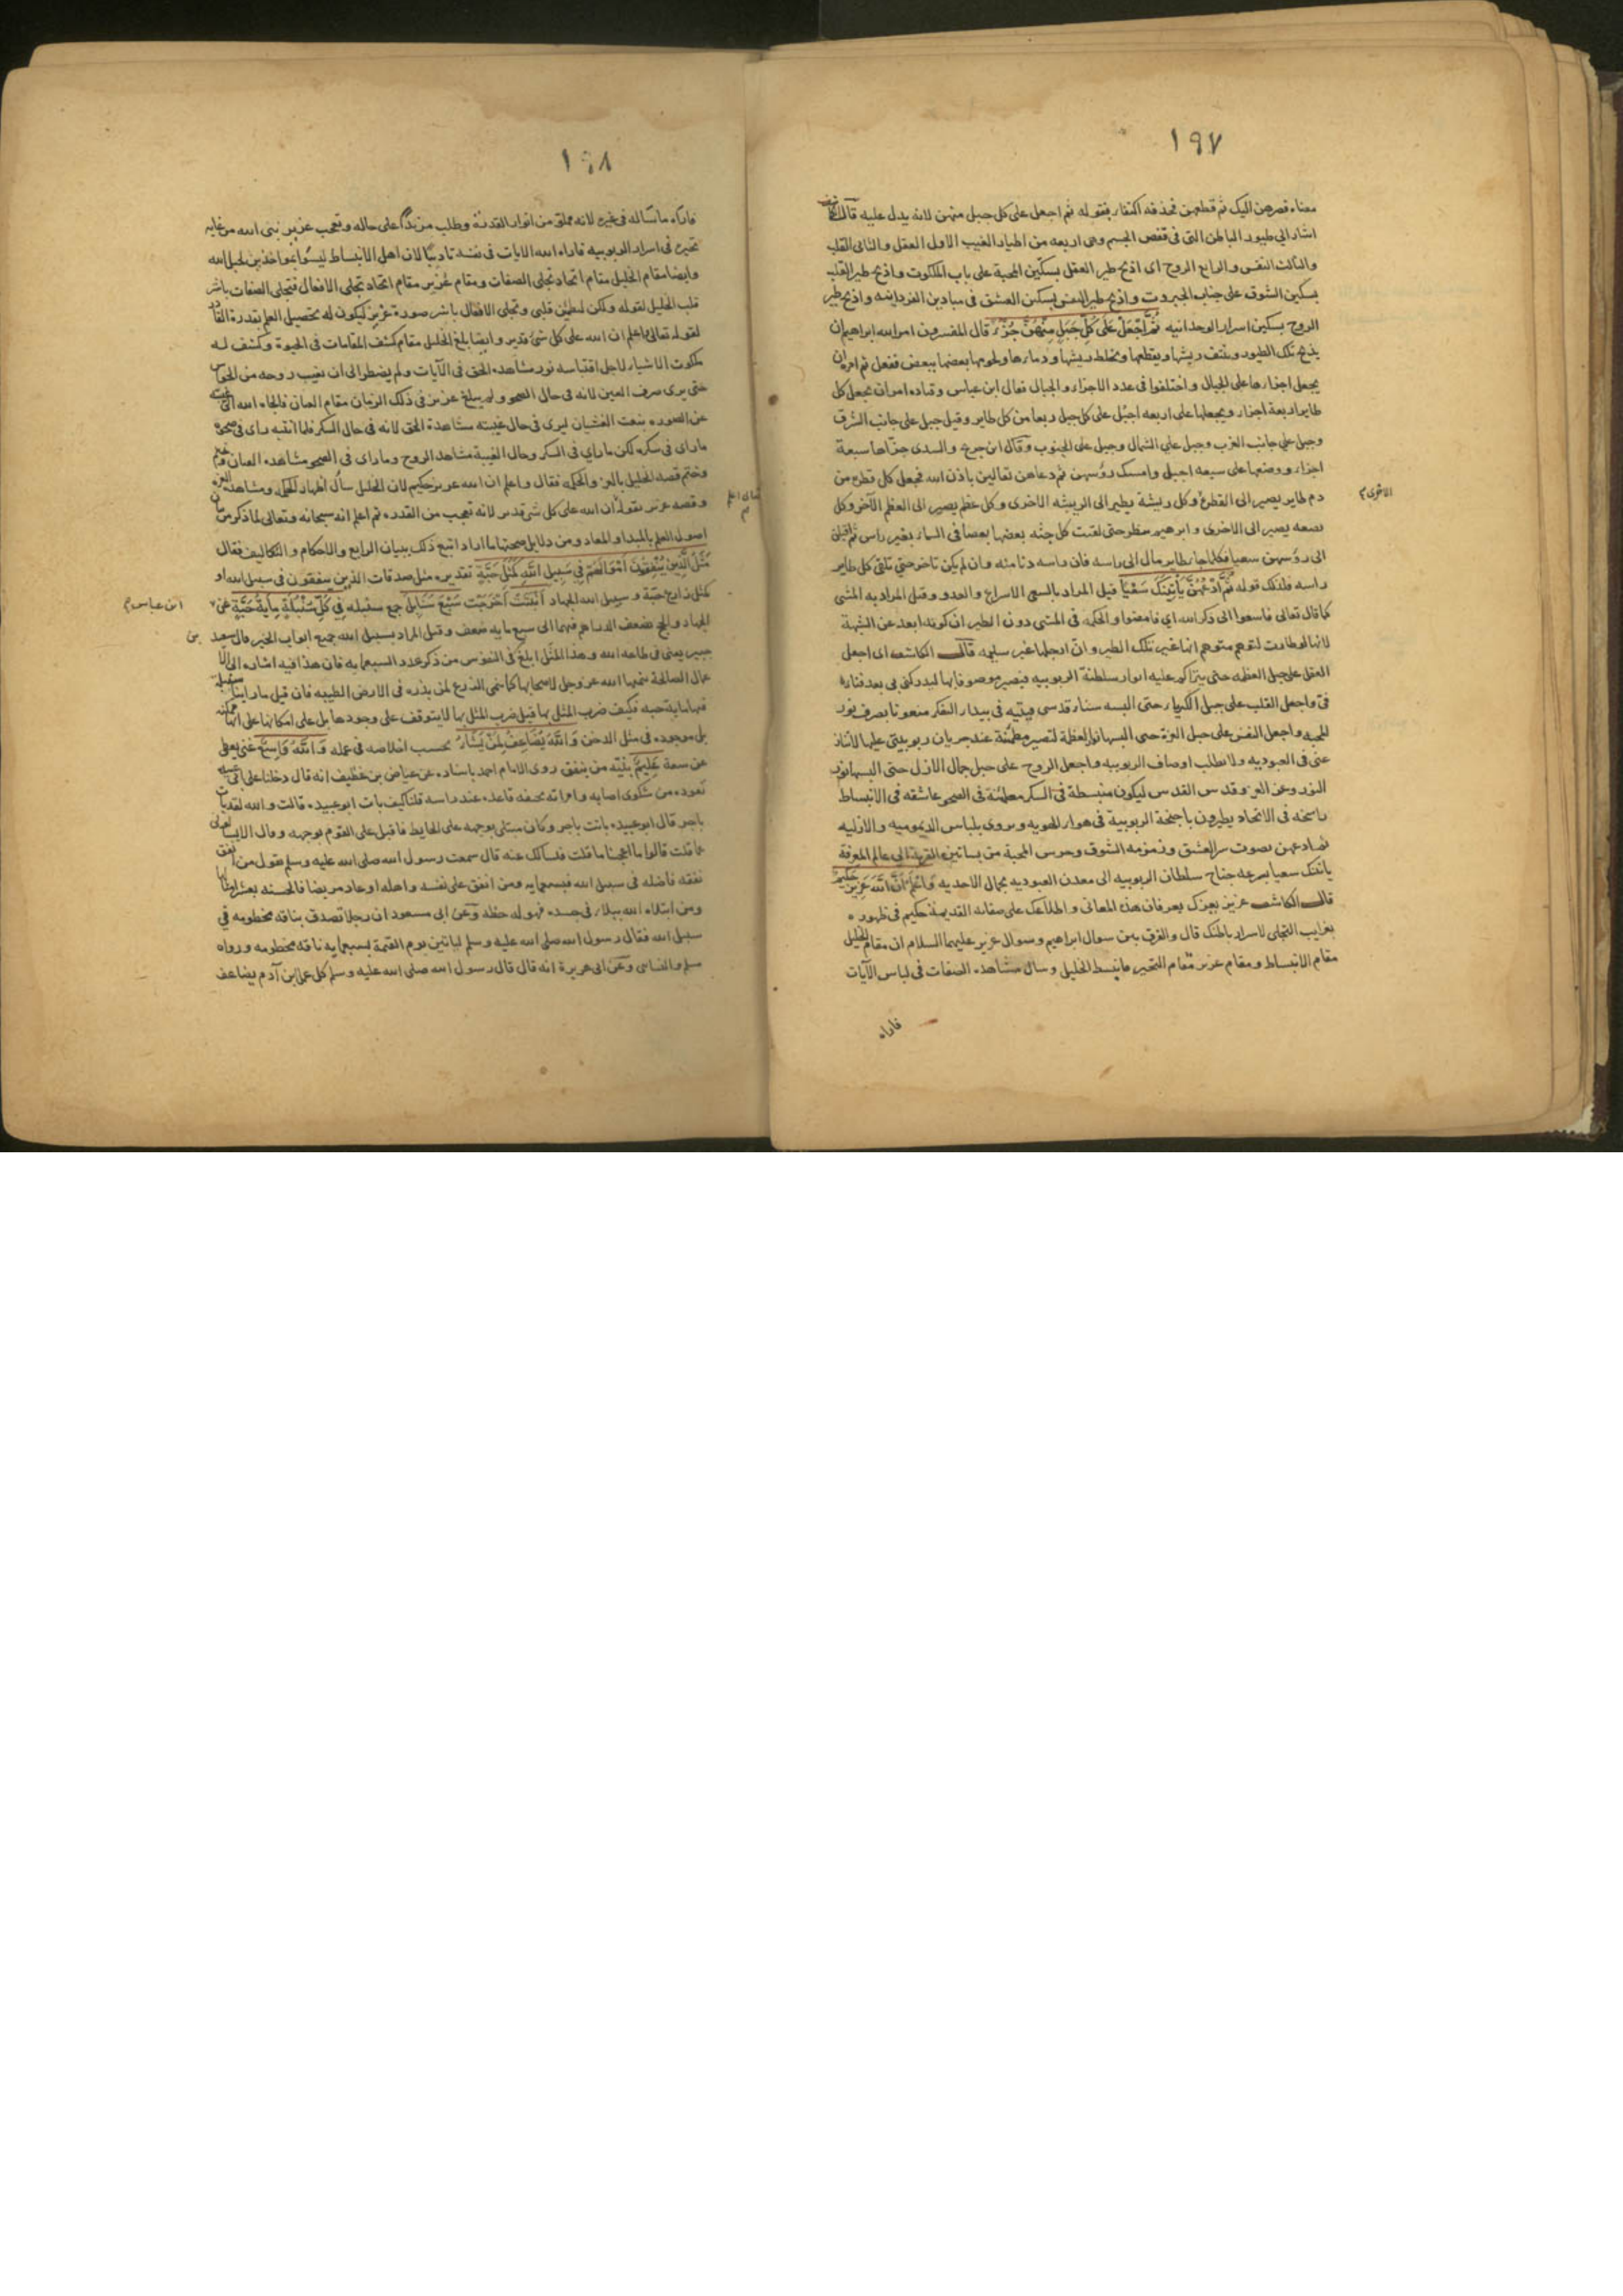 ١٩٧
معناه فصرهن اليك ثم قطعهن فحذفه اكتفاء بقوله ثم اجعل على كل جبل منهن لانه يدل عليه قال
اشار الى طيور الباطن التى فى قفص الجسم وهى اربعه من اطيار الغيب الاول العقل والثانى القلب
والثالث النفس والرابع الروح اى اذبح طير العقل بسكّين المحبة على باب الملكوت واذبح طير القلب
بسكين الشوق على جناب الجبروت واذبح طير النفس بسكين العشق فى ميادين الفردانيه واذبح طير
الروح بسكين اسرار الوحدانيه ثُمَّ اجْعَلْ عَلَى كُلِّ جَبَلٍ مِنْهُنَّ جُزْءً قال المفسرون امر الله ابراهيم ان
يذبح تلك الطيور وينتف ريشها ويقطعها ويخلط ريشها ودماءها ولحومها بعضها ببعض ففعل ثم امره ان
يجعل اجزاءها على الجبال واختلفوا فى عدد الاجزاء والجبال فقال ابن عباس وقتاده امر ان يجعل كل
طاير اربعة اجزاء ويجعلها على اربعه اجبل على كل جبل ربعا من كل طاير وقيل جبل على جانب الشرق
وجبل على جانب الغرب وجبل على الشمال وجبل على الجنوب وقال ابن جريج والسدى جزّاها سبعة
اجزاء ووضعها على سبعه اجبل وامسك رؤسهن ثم دعاهن تعالين باذن الله فجعل كل قطرة من
دم طاير يصير الى القطرة وكل ريشة يطير الى الريشه الاخرى وكل عظم يصير الى العظم الآخر وكل
الاخرى م
بضعه يصير الى الاخرى وابرهيم ينظر حتى لقيت كل جثه بعضها بعضا فى السماء بغير راس ثم اقبلن
الى رؤسهن سعيا فكلما جاء طاير مال الى راسه فان راسه دنا منه وان لم يكن تاخر حتى تلقى كل طاير
راسه فلذلك قوله ثُمَّ ادْعُهُنَّ يَأْتِينَكَ سَعْيًا قيل المراد بالسعى الاسراع والعدو وقيل المراد به المشى
كما قال تعالى فاسعوا الى ذكر الله اى فامضوا والحكمه فى المشى دون الطير ان كونه ابعد عن الشبهة
لانها لو طارت لتوهم متوهم انها غير تلك الطير وان ارجلها غير سليمه قال الكاشف اى اجعل
العقل على جبل العظمه حتى يتراكم عليه انوار سلطنة الربوبيه فيصير موصوفا بها ليدركنى بى بعد فنائه
فىّ واجعل القلب على جبل الكبرياء حتى البسه سناء قدسى فيتيه فى بيداء التفكر منعوتا بصرف نور
المحبه واجعل النفس على جبل العزة حتى البسها نور العظمة لتصير مطمئنة عند جريان ربوبيتى عليها لا تنازعنى
فى العبوديه ولا تطلب اوصاف الربوبيه واجعل الروح على جبل جمال الازل حتى البسها نور
النور وعز العز وقدس القدس ليكون منبسطة فى السكر مطمئنة فى الصحو عاشقه فى الانبساط
راسخه فى الاتحاد يطيرون باجنحة الربوبية فى هواء الهويه ويروى بلباس الديموميه والازليه
ثم ادعهن بصوت سر العشق وزمزمه الشوق وجرس المحبة من بساتين القربة الى عالم المعرفة
ياتينك سعيا بسرعه جناح سلطان الربوبيه الى معدن العبوديه بجمال الاحديه وَاعْلَمْ اَنَّ اللّٰهَ عَزِيزٌ حَكِيمٌ
قال الكاشف عزيز بعزك بعرفان هذه المعانى واطلاعك على صفاته القديمة حكيم فى ظهوره
بغرايب التجلى لاسرار باطنك قال والفرق بين سوال ابراهيم وسوال عزير عليهما السلام ان مقام الخليل
مقام الانبساط ومقام عزير مقام التحير فانبسط الخليل وسال مشاهدة الصفات فى لباس الآيات
فاراه
١٩٨
فاراه ما ساله فى غيره لانه مملو من انوار القدرة وطلب مزيدا على حاله وتعجب عزير نبى الله من غايه
تحيره فى اسرار الربوبيه فاراه الله الايات فى نفسه تاديبًا لان اهل الانبساط ليسوا بمواخذين
وايضا مقام الخليل مقام اتحاد تجلى الصفات ومقام عُزير مقام اتحاد تجلى الافعال فتجلى الصفات باشر
قلب الخليل لقوله ولكن ليطمئن قلبى وتجلى الافعال باشر صورة عزير ليكون له تحصيل العلم بقدرة
لقوله تعالى اعلم ان الله على كل شئ قدير وايضا بلغ الخليل مقام كشف المقامات فى الحيوة وكشف له
ملكوت الاشياء لاجل اقتباسه نور مشاهده الحق فى الآيات ولم يضطر الى ان يغيب روحه من
حتى يرى صرف العين لانه فى حال الصحو ولم يبلغ عزير فى ذلك الزمان مقام العيان فالجاه الله
عن الصوره بنعت الغشيان ليرى فى حال غيبته مشاهدة الحق لانه فى حال السكر فلما انتبه راى فى صحوه
ماراى فى سكره لكن ماراى فى السكر وحال الغيبة مشاهد الروح وماراى فى الصحو مشاهده العيان
وختم قصه الخليل بالعز والحكمه فقال واعلم ان الله عزيز حكيم لان الخليل سأل اظهار الحكمه ومشاهده العز
وقصه عزير بقوله ان الله على كل شئ قدير لانه تعجب من القدره ثم اعلم انه سبحانه وتعالى لما ذكر من بيان
اصول العلم بالمبدا والمعاد ومن دلايل صحتها ما اراد اتبع ذلك ببيان الشرايع والاحكام والتكاليف فقال
مَثَلُ الَّذِينَ يُنْفِقُونَ اَمْوَالَهُمْ فِى سَبِيلِ اللّٰهِ كَمَثَلِ حَبَّةٍ تقديره مثل صدقات الذين ينفقون فى سبيل الله او
كمثل زارع حبّة وسبيل الله الجهاد اَنْبَتَتْ اَخرَجَت سَبْعَ سَنَابِلَ جمع سنبله فِى كُلِّ سُنْبُلَةٍ مِايَةُ حَبَّةٍ عن
ابن عباس م
الجهاد والحج تضعف الدراهم فيهما الى سبع مايه ضعف وقيل المراد بسبيل الله جميع ابواب الخير قال سعيد بن
جبير يعنى فى طاعه الله وهذا المثل ابلغ فى النفوس من ذكر عدد السبعمايه فان هذا فيه اشاره الى
عمال الصالحة ينميها الله عز وجل لاصحابها كما ينمى الزرع لمن بذره فى الارض الطيبه فان قيل ماراينا سنبلة
فيها مايه حبه فكيف ضرب المثل بها قيل ضرب المثل بها لا يتوقف على وجودها بل على امكانها على انها ممكنه
بل موجوده فى مثل الدخن وَاللّٰهُ يُضَاعِفُ لِمَنْ يَشَاءُ بحسب اخلاصه فى عمله وَاللّٰهُ وَاسِعٌ غنى يعطى
عن سعة عَلِيمٌ بنيّه من ينفق روى الامام احمد باسناده عن عياض بن غطيف انه قال دخلنا على ابى عبيده
نعوده من شكوى اصابه وامراته تحيفه قاعده عند راسه قلنا كيف بات ابو عبيده قالت والله لقد بات
باجر قال ابو عبيده ما بت باجر وكان مقبلا بوجهه على الحايط فاقبل على القوم بوجهه وقال الا تسالونى
عما قلت قالوا ما اعجبنا ما قلت فنسالك عنه قال سمعت رسول الله صلى الله عليه وسلم يقول من انفق
نفقه فاضله فى سبيل الله فبسبعمايه ومن انفق على نفسه واهله او عاد مريضا فالحسنه بعشر امثالها
ومن ابتلاه الله ببلاء فى جسده فهو له حطة وعن ابى مسعود ان رجلا تصدق بناقه مخطومه فى
سبيل الله فقال رسول الله صلى الله عليه وسلم لياتين يوم القيمة بسبعمايه ناقه مخطومه ورواه
مسلم والنساى وعن ابى هريرة انه قال قال رسول الله صلى الله عليه وسلم كل عمل ابن آدم يضاعف